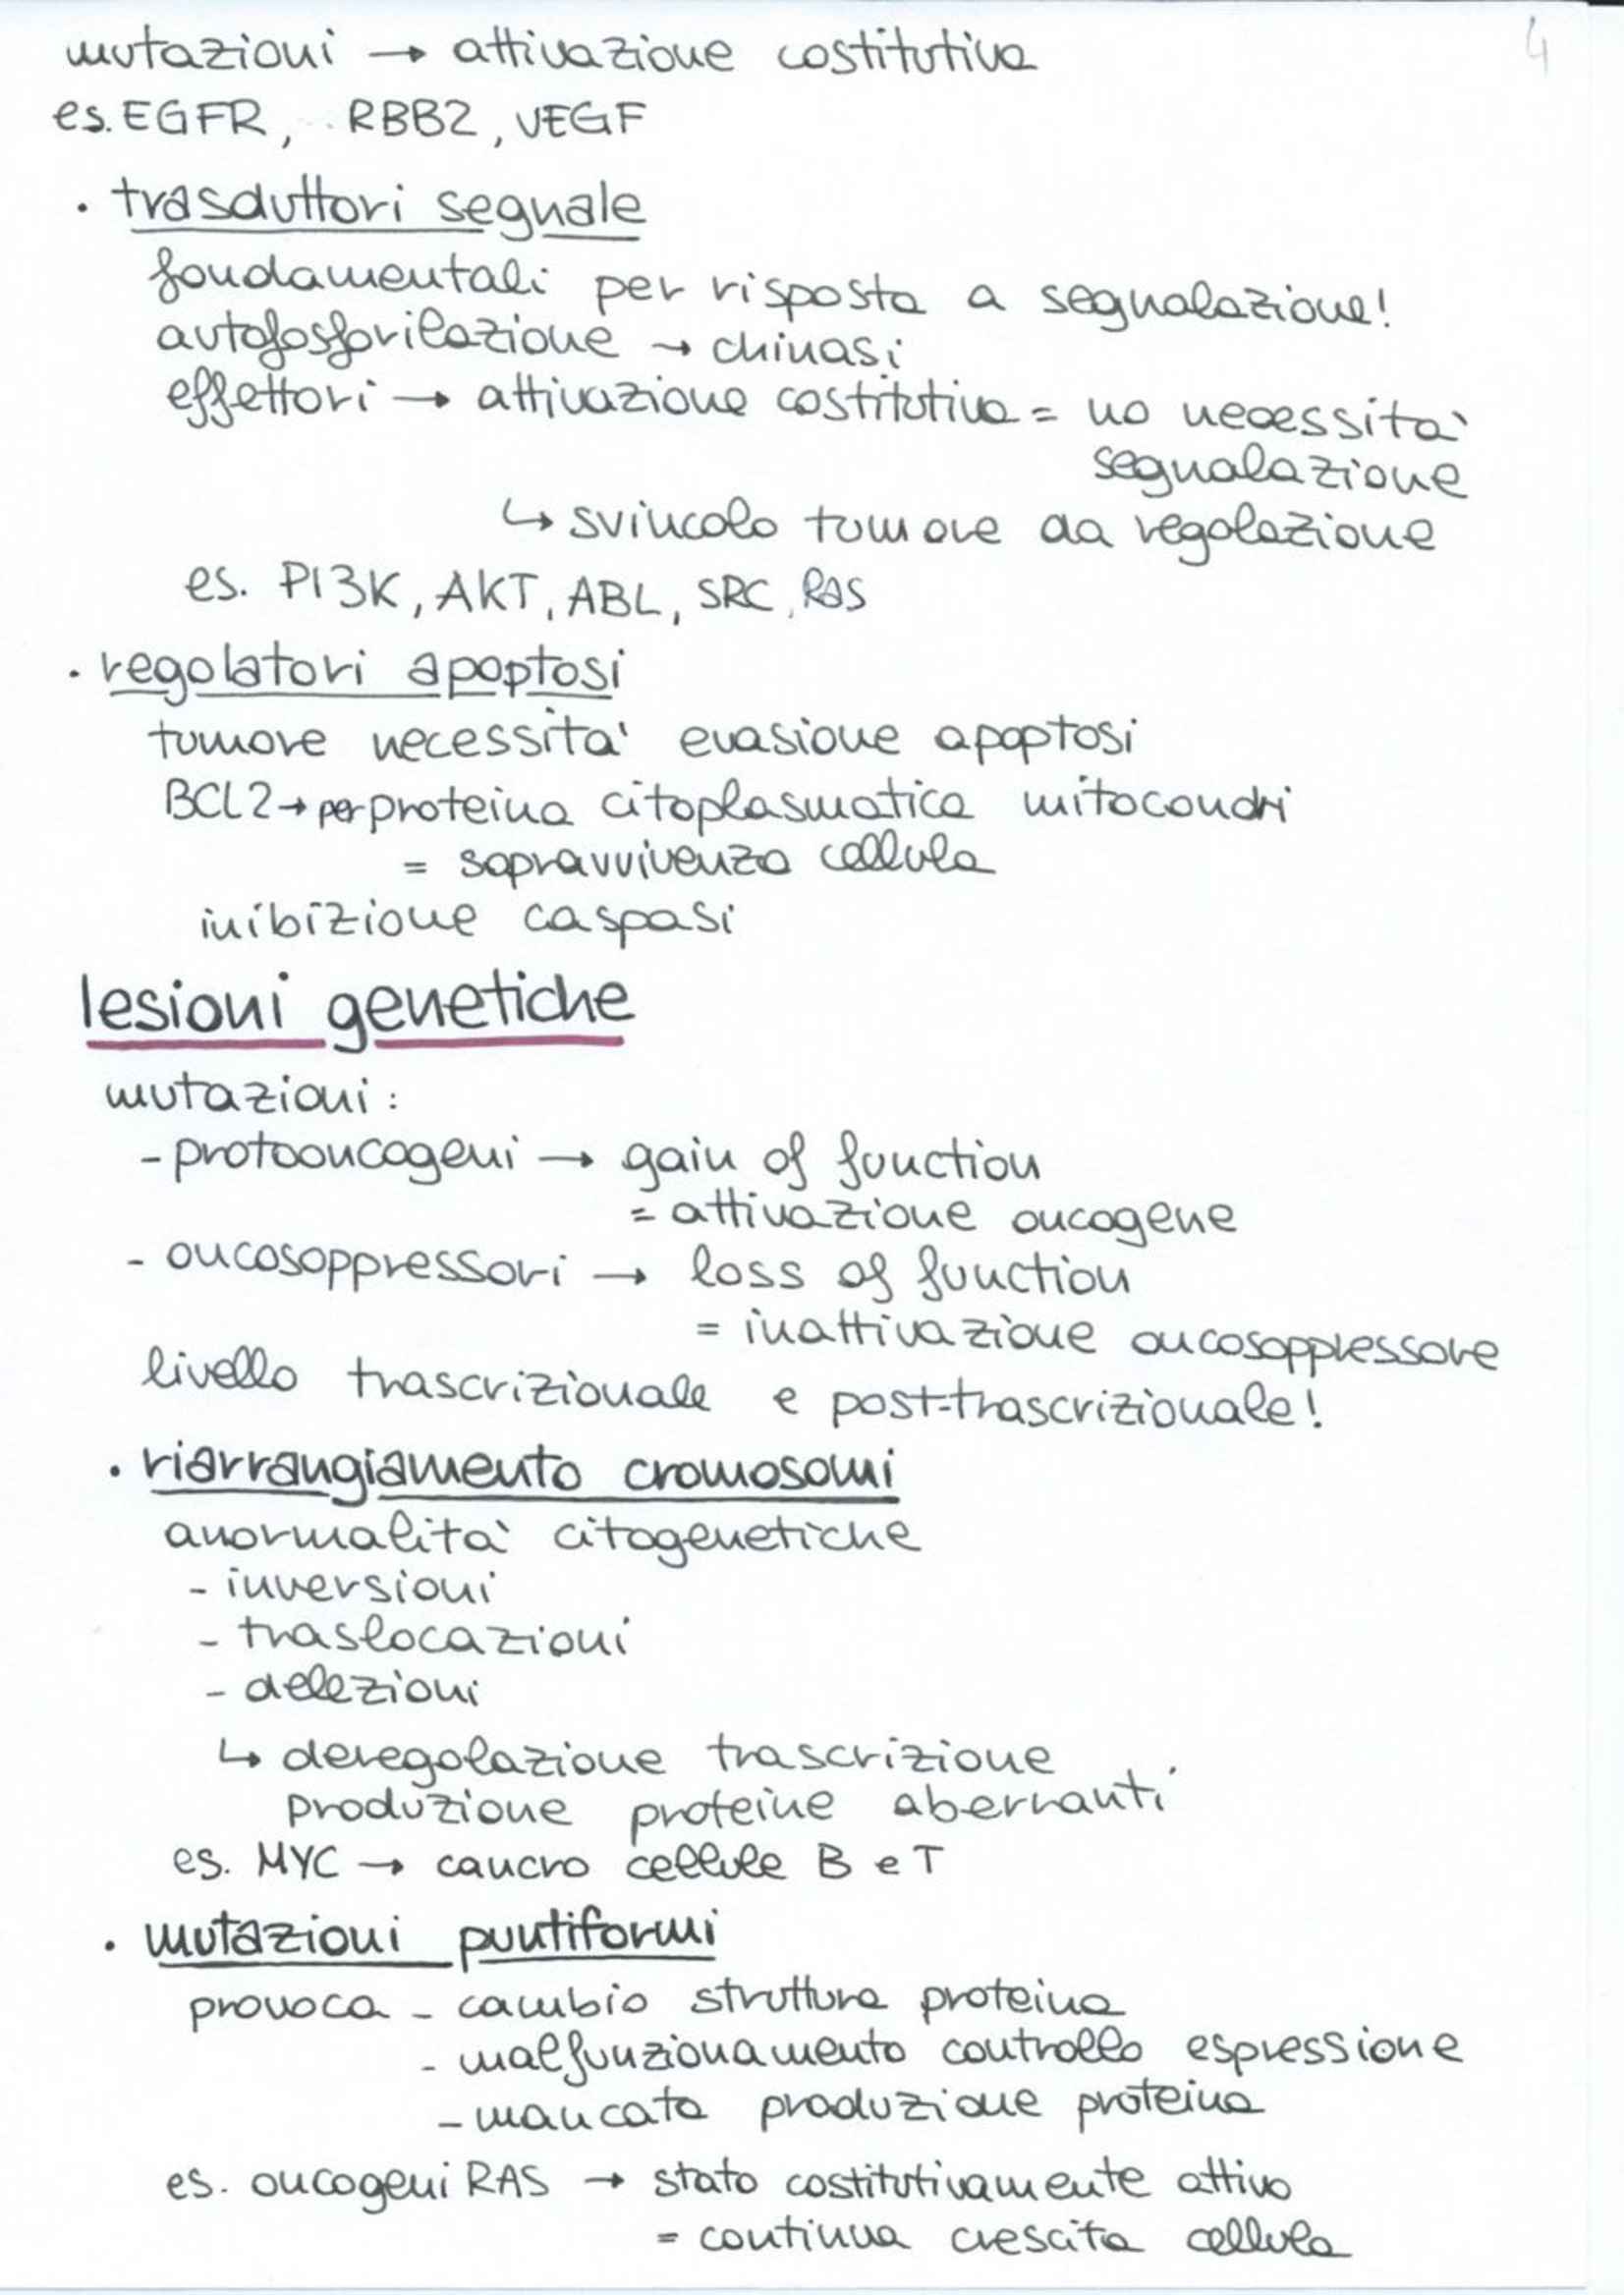 4
mutazioni → attivazione costitutiva
es. EGFR, RBB2, VEGF
· trasduttori segnale
fondamentali per risposta a segnalazione!
autofosforilazione → chinasi
effettori → attivazione costitutiva = no necessita'
segnalazione
↳ svincolo tumore da regolazione
es. PI3K, AKT, ABL, SRC, RAS
· regolatori apoptosi
tumore necessita' evasione apoptosi
BCL2 → per proteina citoplasmatica mitocondri
= sopravvivenza cellula
inibizione caspasi
lesioni genetiche
mutazioni:
- protooncogeni → gain of function
= attivazione oncogene
- oncosoppressori → loss of function
= inattivazione oncosoppressore
livello trascrizionale e post-trascrizionale!
· riarrangiamento cromosomi
anormalita' citogenetiche
- inversioni
- traslocazioni
- delezioni
↳ deregolazione trascrizione
produzione proteine aberranti
es. MYC → cancro cellule B e T
· mutazioni puntiformi
provoca - cambio struttura proteina
- malfunzionamento controllo espressione
- mancata produzione proteina
es. oncogeni RAS → stato costitutivamente attivo
= continua crescita cellula